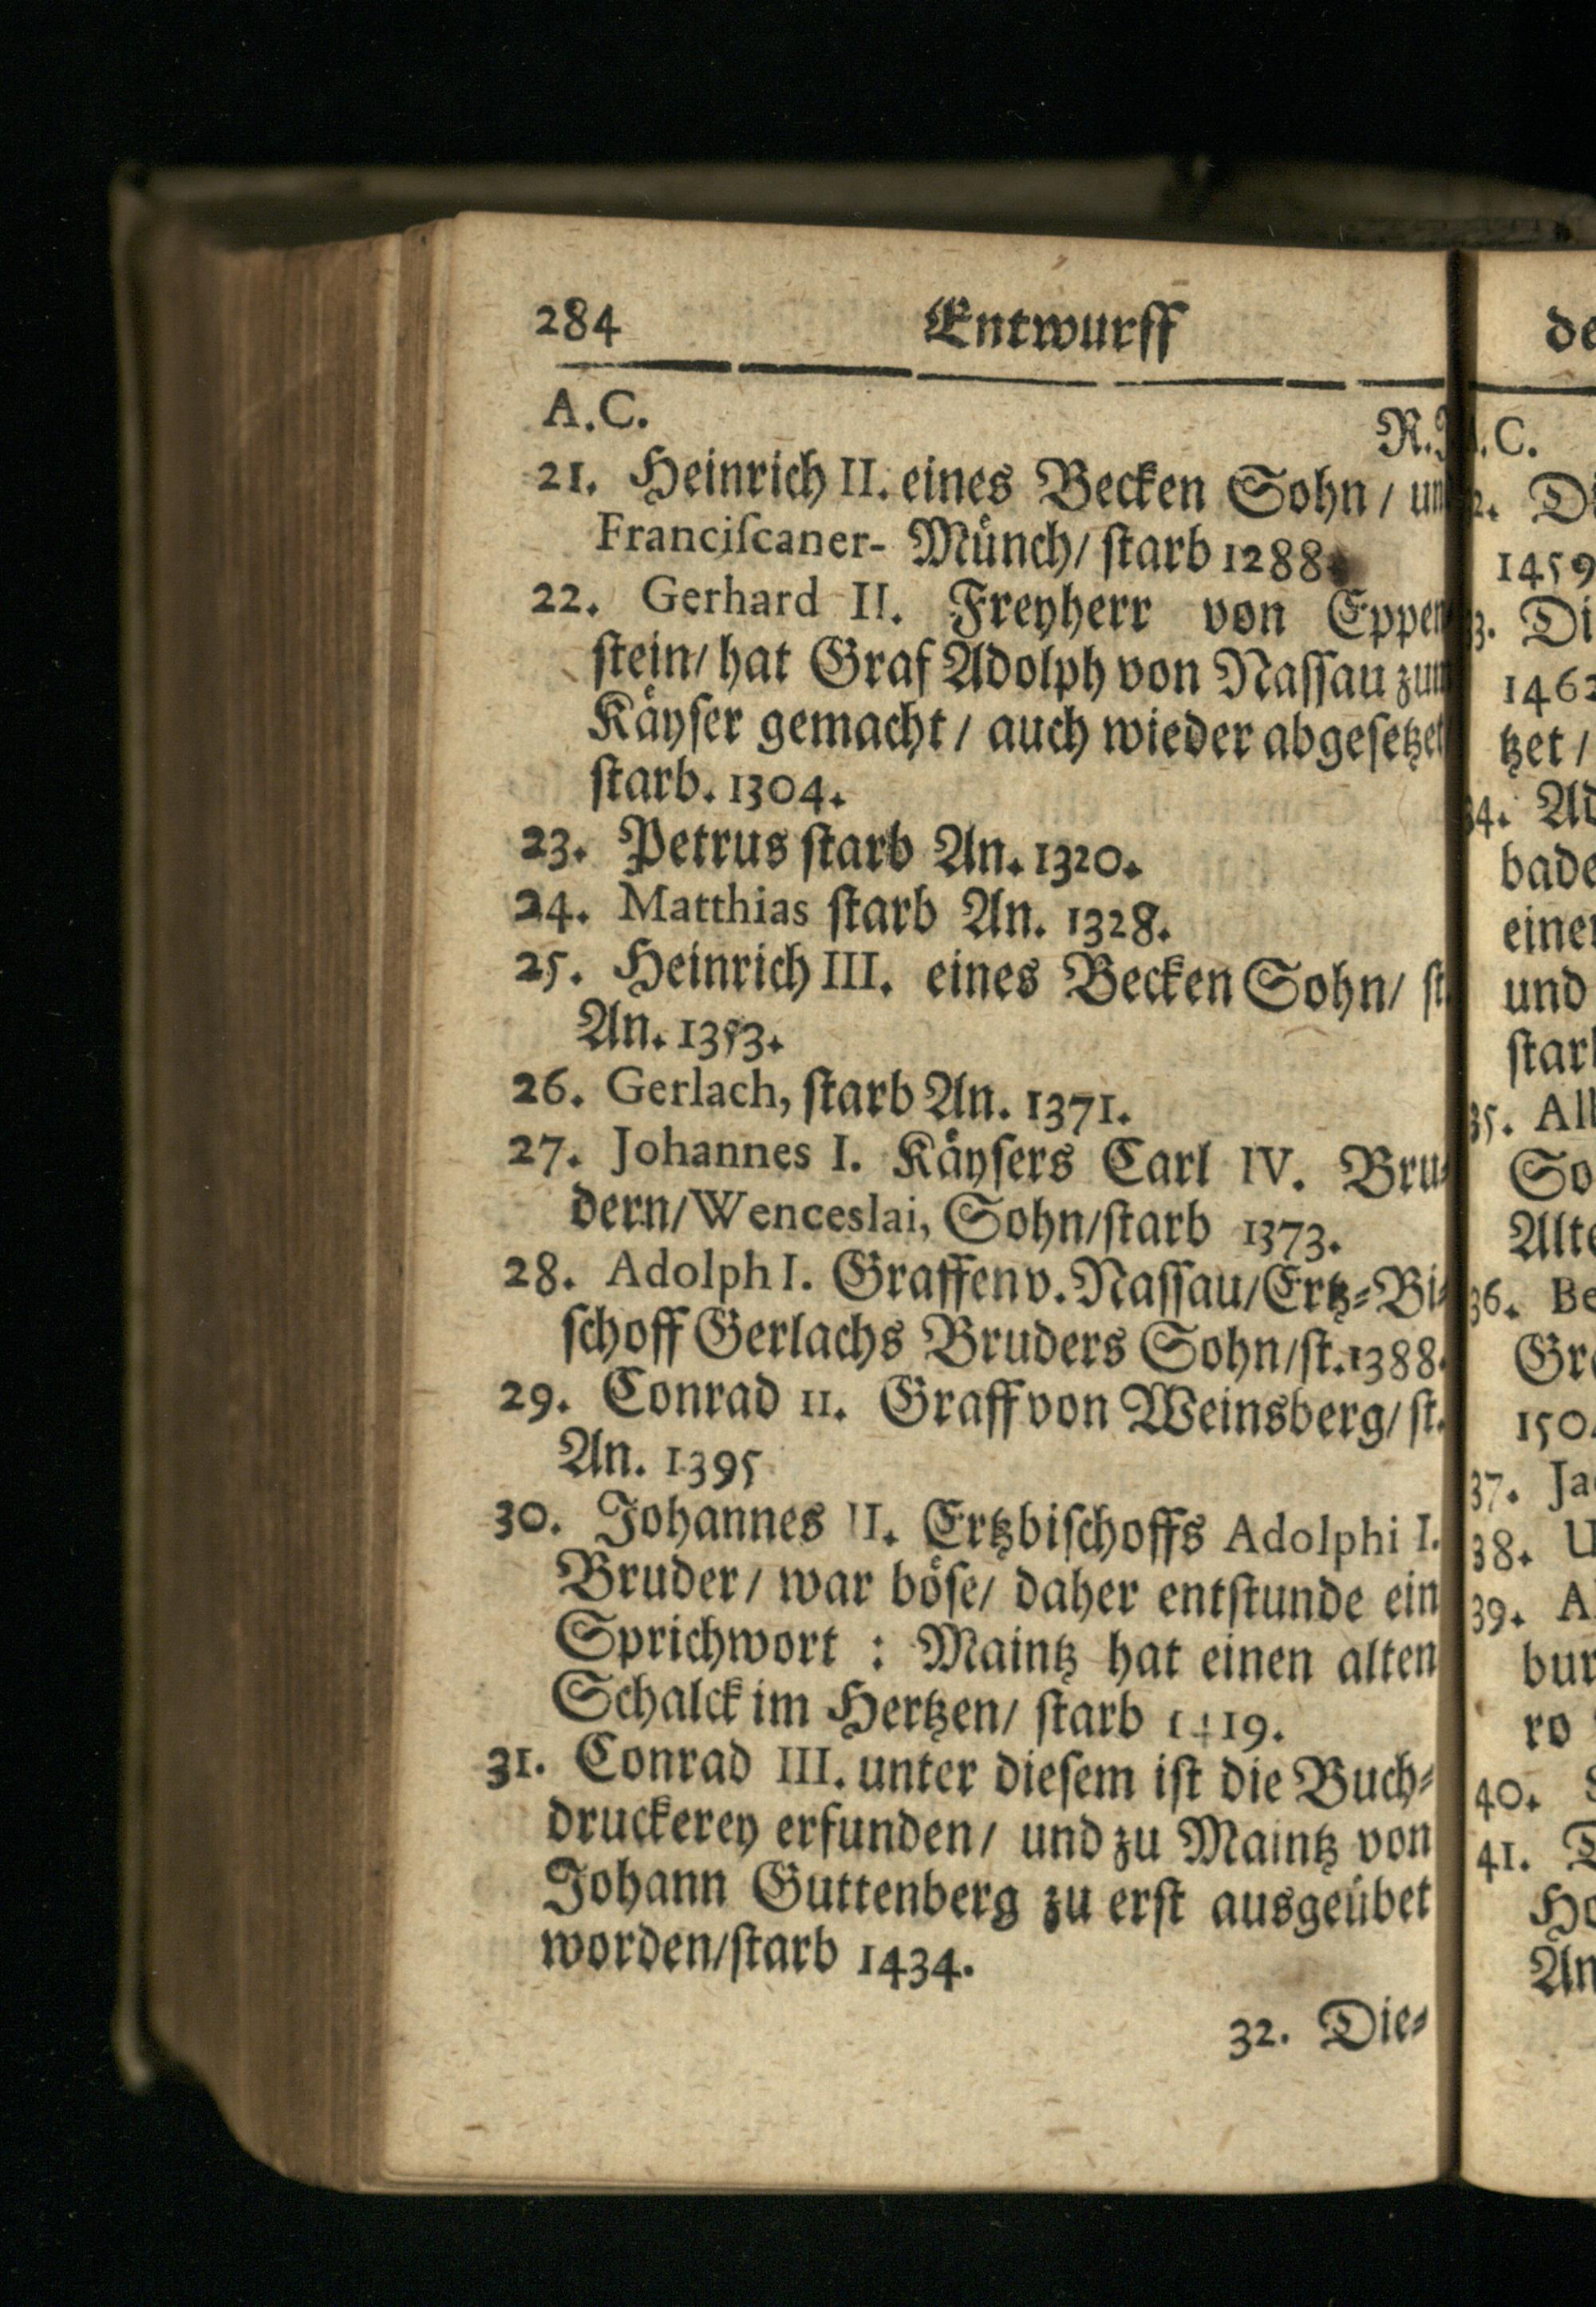 284 Entwurff
A.C. R.
21. Heinrich II. eines Becken Sohn / un
Franciſcaner- Muͤnch/ ſtarb 1288.
22. Gerhard II. Freyherr von Eppen
ſtein/ hat Graf Adolph von Naſſau zum
Kaͤyſer gemacht / auch wieder abgeſetzet
ſtarb. 1304.
23. Petrus ſtarb An. 1320.
24. Matthias ſtarb An. 1328.
25. Heinrich III. eines Becken Sohn/ ſt.
An. 1353.
26. Gerlach, ſtarb An. 1371.
27. Johannes I. Kaͤyſers Carl IV. Bru-
dern/ Wenceslai, Sohn/ſtarb 1373.
28. Adolph I. Graffen v. Naſſau/Ertz-Bi-
ſchoff Gerlachs Bruders Sohn/ſt. 1388.
29. Conrad II. Graff von Weinsberg/ ſt.
An. 1395
30. Johannes II. Ertzbiſchoffs Adolphi I.
Bruder/ war boͤſe/ daher entſtunde ein
Sprichwort : Maintz hat einen alten
Schalck im Hertzen/ ſtarb 1419.
31. Conrad III. unter dieſem iſt die Buch-
druckerey erfunden/ und zu Maintz von
Johann Guttenberg zu erſt ausgeuͤbet
worden/ſtarb 1434.
32. Die-
de
.C.
2. Di
1459
3. Di
1462
tzet /
34. Ad
bade
einer
und
ſtarb
35. Alb
So
Alte
36. Be
Gra
150
37. Ja
38. U
39. A
bur
ro
40.
41.
Ho
An